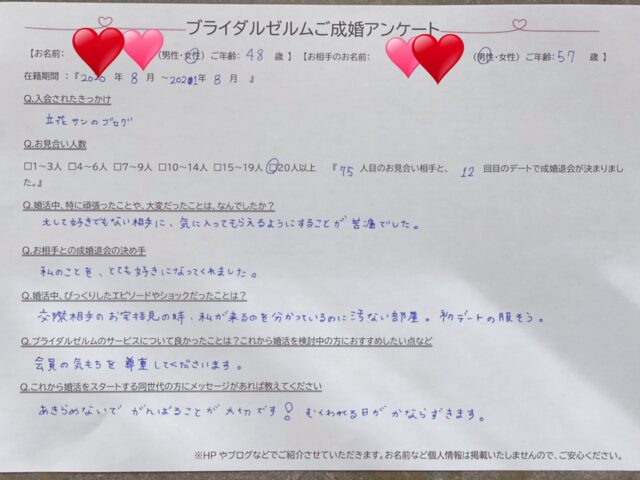 ブライダルゼルムご成婚アンケート
【お名前: （男性・女性）ご年齢:48 歳】【お相手のお名前: （男性・女性）ご年齢:57 歳】
在籍期間:『2020年8月～2021年8月』
Q.入会されたきっかけ
立花サンのブログ
Q.お見合い人数
□1～3人 □4～6人 □7～9人 □10～14人 □15～19人 □20人以上 『75人目のお見合い相手と、12回目のデートで成婚退会が決まりまし
た。』
Q.婚活中、特に頑張ったことや、大変だったことは、なんでしたか?
大して好きでもない相手に、気に入ってもらえるようにすることが苦痛でした。
Q.お相手との成婚退会の決め手
私のことを、とても好きになってくれました。
Q.婚活中、びっくりしたエピソードやショックだったことは?
交際相手のお宅拝見の時、私が来るのを分かっているのに汚ない部屋。初デートの服そう。
Q.ブライダルゼルムのサービスについて良かったことは?これから婚活を検討中の方におすすめしたい点など
会員の気もちを尊重してくださいます。
Q.これから婚活をスタートする同世代の方にメッセージがあれば教えてください
あきらめないでがんばることが大切です! むくわれる日がかならずきます。
※HPやブログなどでご紹介させていただきます。お名前など個人情報は掲載いたしませんので、ご安心ください。